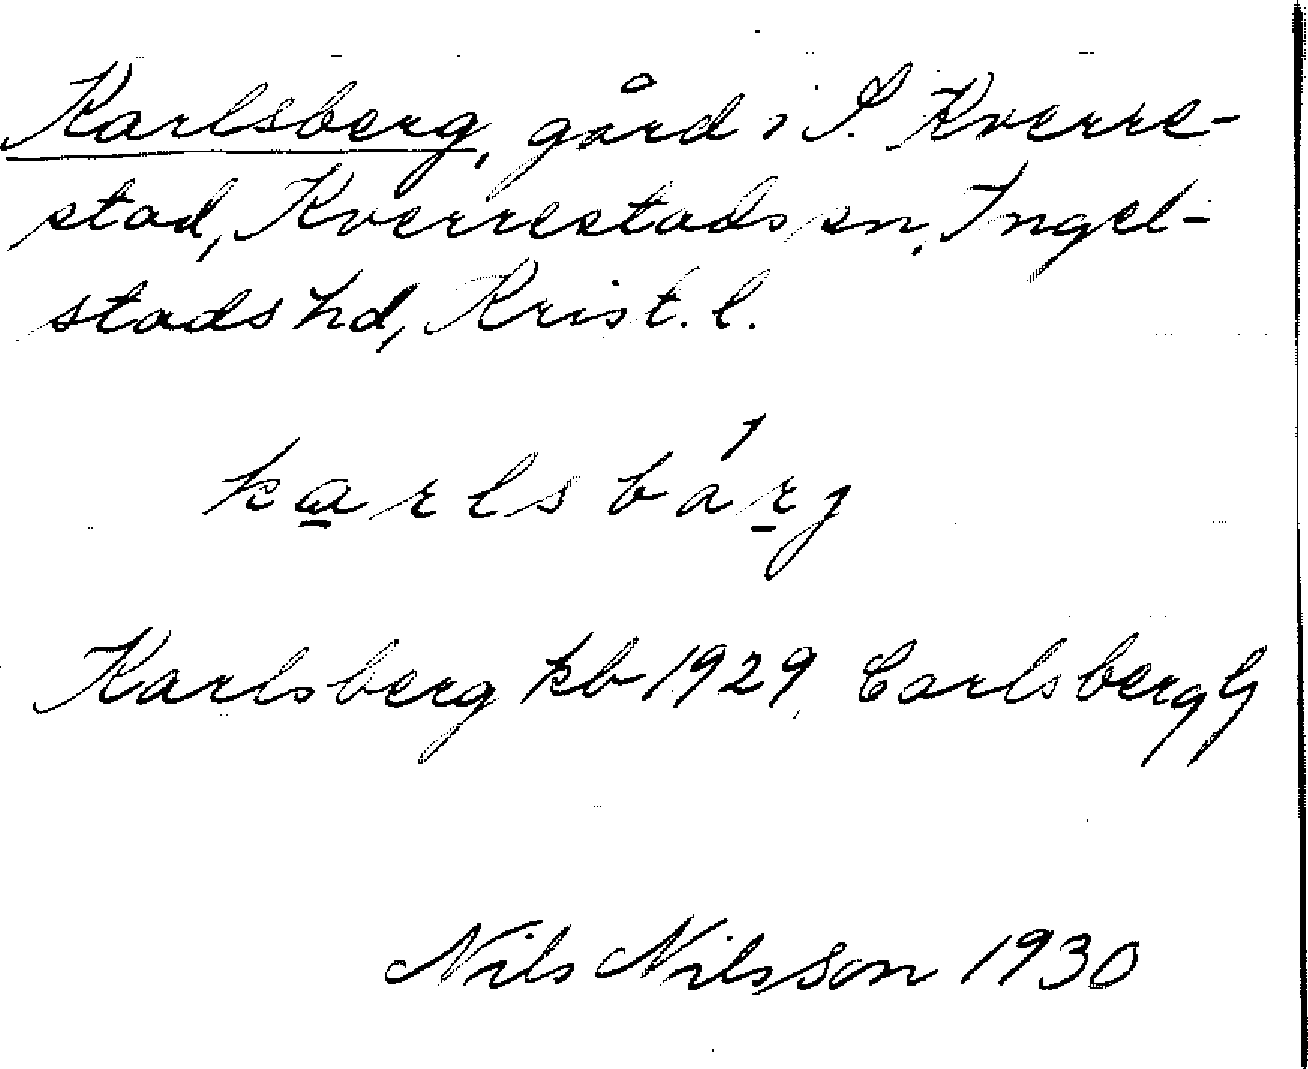 Karlsberg, gård i S. Kverre-
stad, Kverrestads sn, Ingel-
stads hd, Krist. l.
karlsbárj
Karlsberg kb 1929, Carlsberg
Nils Nilsson 1930